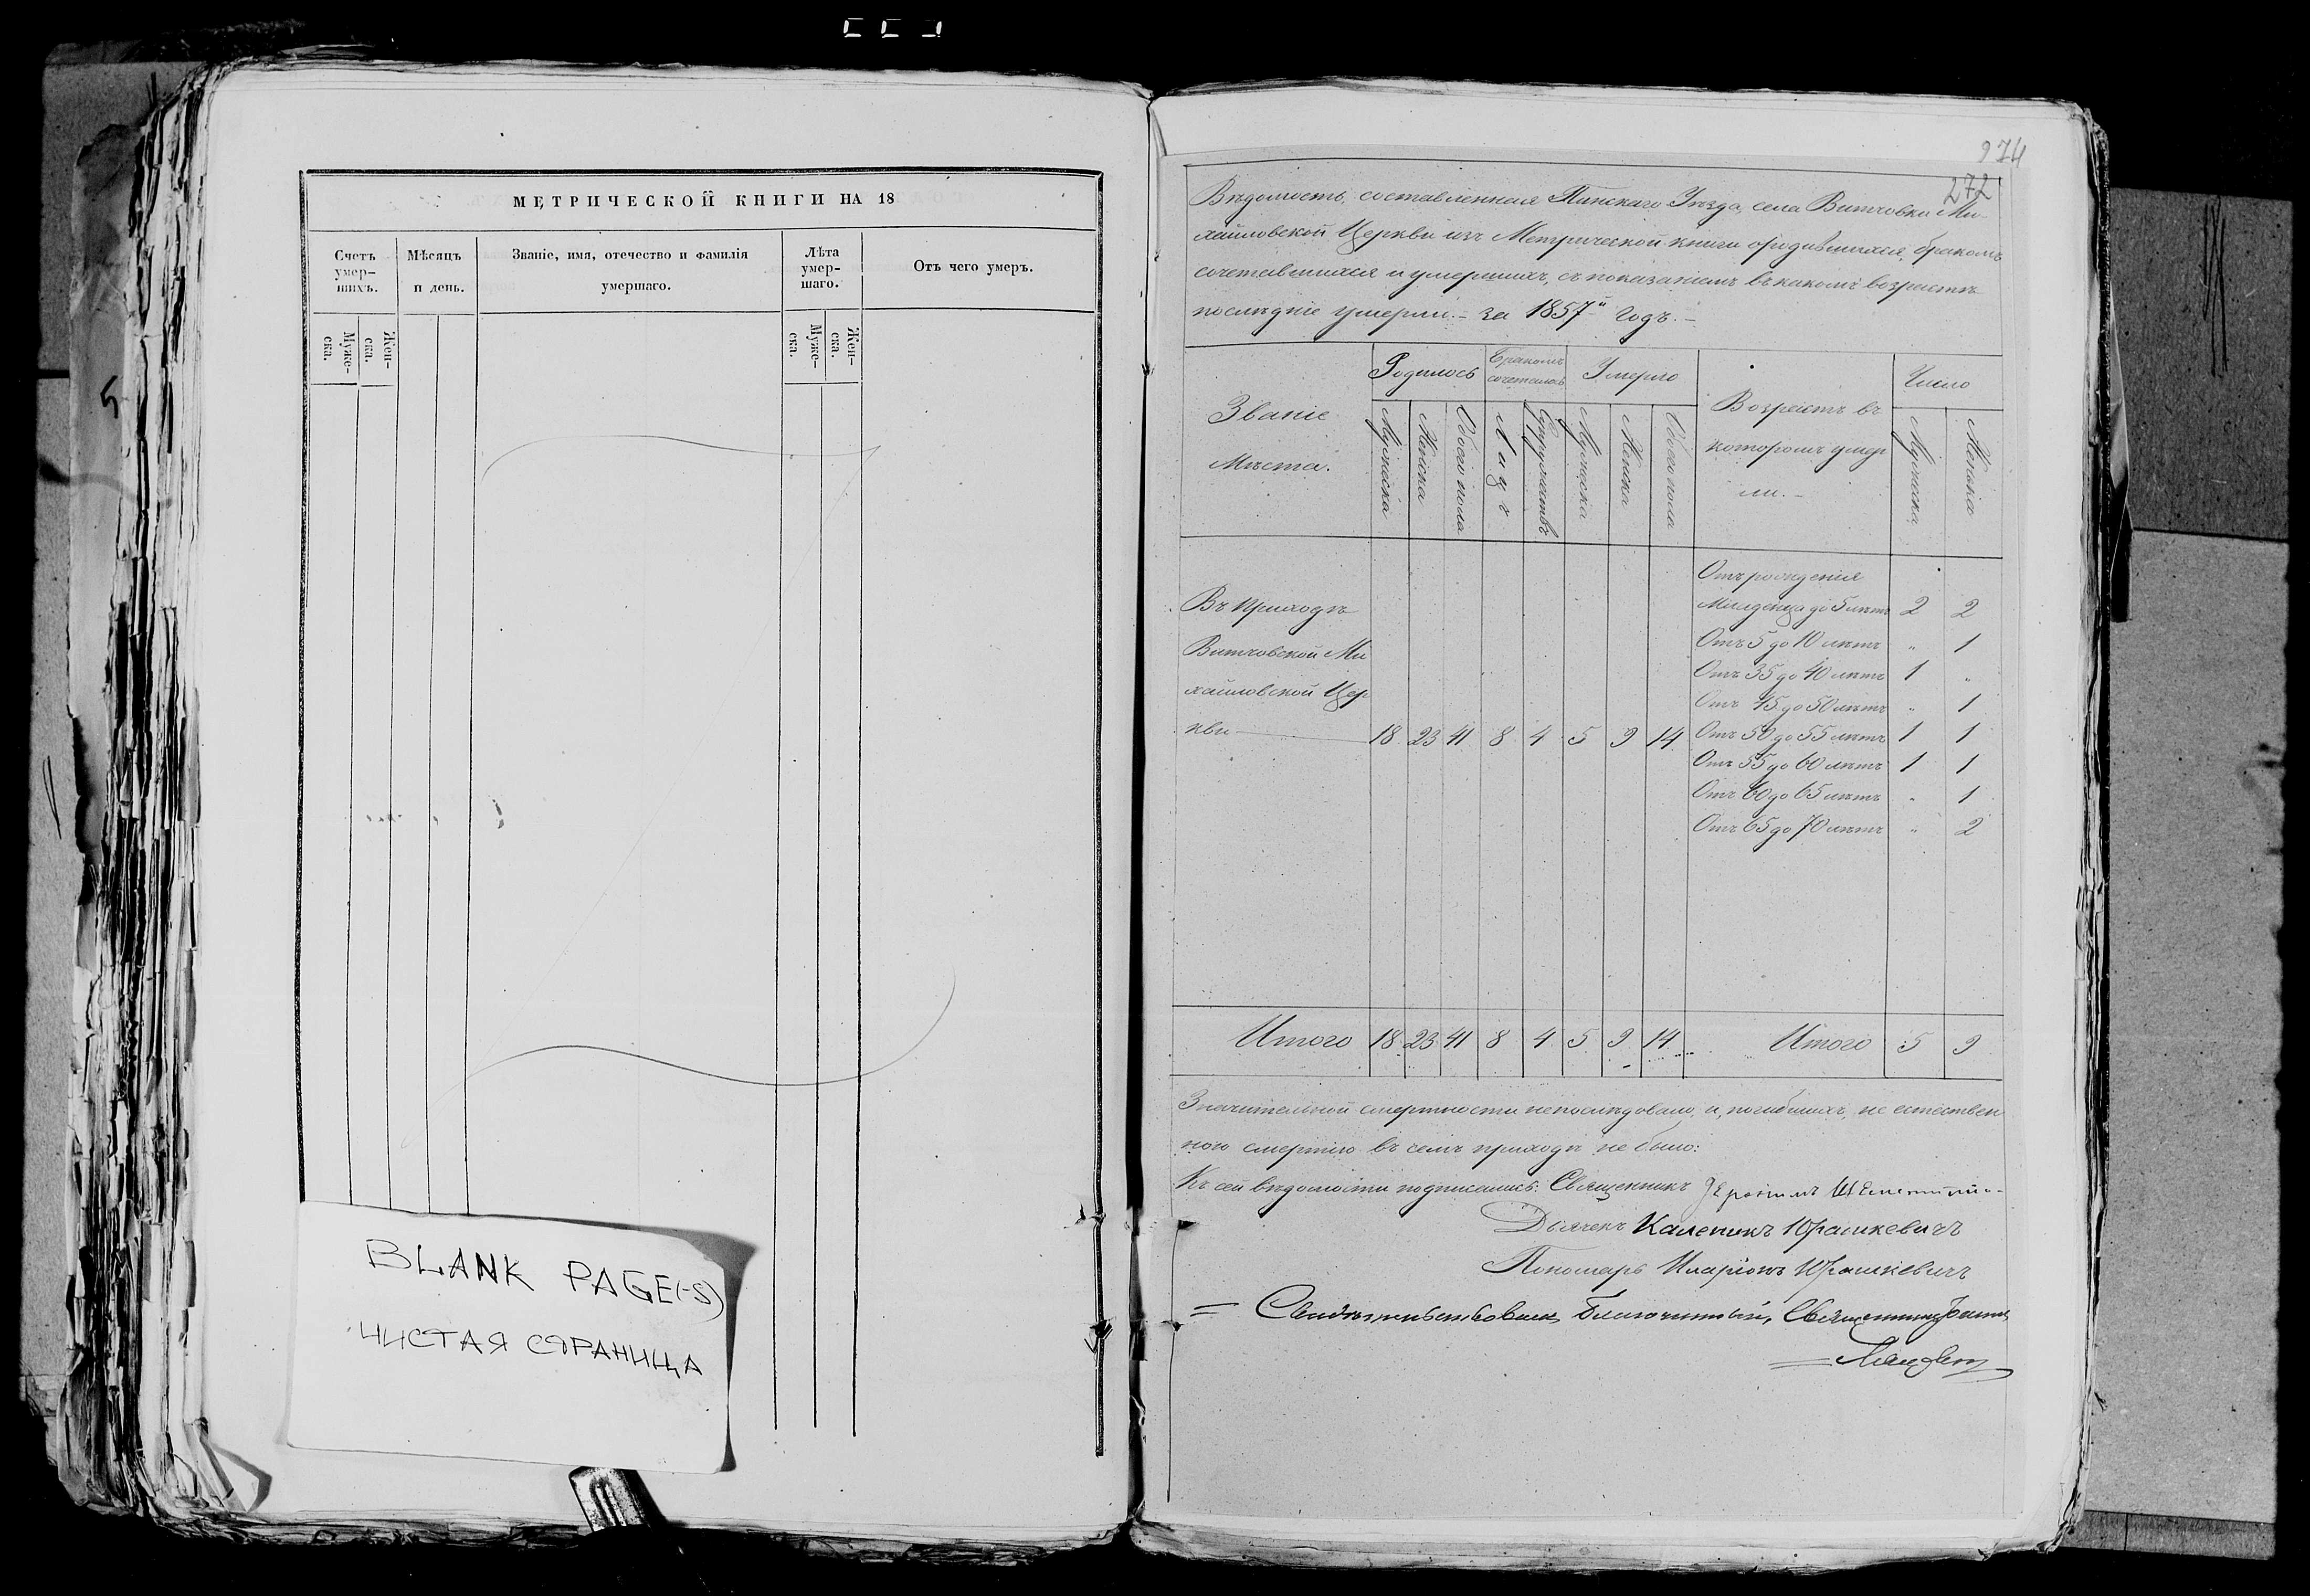 МЕТРИЧЕСКОЙ КНИГИ НА 18
Счетъ умер-шихъ.
Мѣсяцъ и день.
Званіе, имя, отечество и фамилія умершаго.
Лѣта умер-шаго.
Отъ чего умеръ.
Муже-ска.
Жен-ска.
Муже-ска.
Жен-ска.
BLANK PAGE(-S)
ЧИСТАЯ СТРАНИЦА
974
272
Вѣдомость, составленная Пинскаго Уѣзда, села Витчовки Ми-
хайловской Церкви изъ Метрической книги о родившихся, бракомъ
сочетавшихся и умершихъ, съ показаніемъ въ какомъ возрастѣ
послѣдніе умерли. – за 1857й годъ. –
Званіе Мѣста.
Родилось
Бракомъ сочеталось
Умерло
Возрастъ въ которомъ умер ли. –
Число
Мужеска
Женска
Обоего пола
Лицъ
Супружествъ
Мужеска
Женска
Обоего пола
Мужеска
Женска
Отъ рожденія
Въ приходѣ Младенца до 5 лѣтъ 2 2
Отъ 5 до 10 лѣтъ " 1
Витчовской Ми
Отъ 35 до 40 лѣтъ 1 "
хайловской Цер
Отъ 45 до 50 лѣтъ " 1
кви 18 23 41 8 4 5 9 14 Отъ 50 до 55 лѣтъ 1 1
Отъ 55 до 60 лѣтъ 1 1
Отъ 60 до 65 лѣтъ " 1
Отъ 65 до 70 лѣтъ " 2
Итого 18 23 41 8 4 5 9 14 Итого 5 9
Значительной смертности непослѣдовало, и, погибшихъ, не естествен
ною смертію въ семъ приходѣ не было:
Къ сей вѣдомости подписались: Священникъ Іеронимъ
Дьячекъ Каленикъ Юрашкевичъ
Пономарь Иларіонъ Юрашкевичъ
= Свидѣтельствовалъ Благочинный, Священникъ